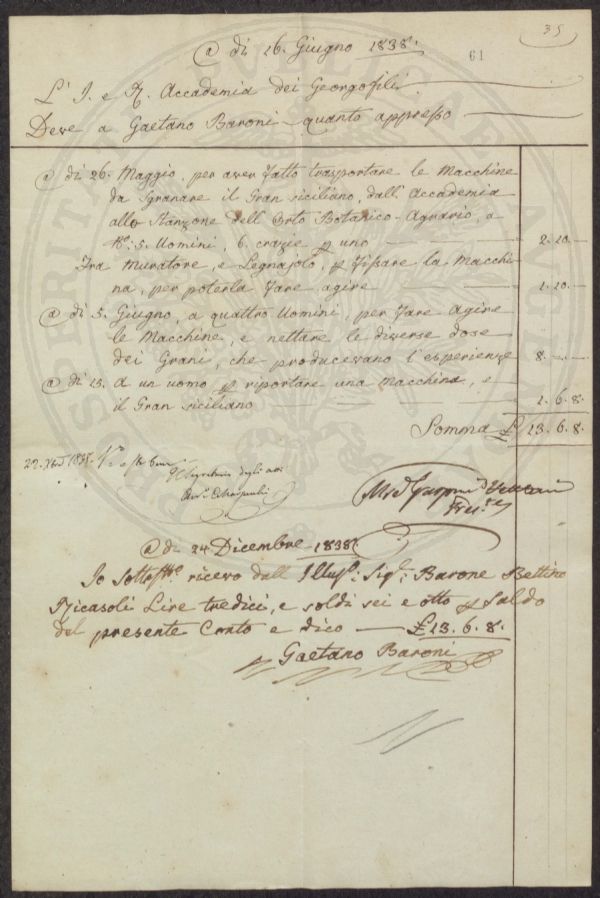 35
A dì 16. Giugno 1838.
61
L' I. e R. Accademia dei Georgofili
Deve a Gaetano Baroni quanto appresso
A dì 26. Maggio, per aver fatto trasportare le Macchine
da sgranare il Gran siciliano, dall'Accademia
allo Stanzone dell'Orto Botanico-Agrario, a
N°: 5. Uomini, 6. crazie p uno 2. 10.
Tra Muratore, e Legnajolo, p fissare la Macchi-
na, per poterla fare agire 1. 10.
A dì 5. Giugno, a quattro Uomini, per fare agire
le Macchine, e nettare le diverse dose
dei Grani, che producevano l'esperienze 8.
A dì 13. A un uomo p riportare una macchina, e
il Gran siciliano 1. 6. 8.
Somma £ 13. 6. 8.
1838.
Il Segretario degli atti
A dì 24 Dicembre 1838.
Io Sottos.tto ricevo dall'Illus: Sig: Barone Bettino
Ricasoli Lire tredici, e soldi sei e otto p saldo
del presente Conto e dico £ 13. 6. 8.
Gaetano Baroni